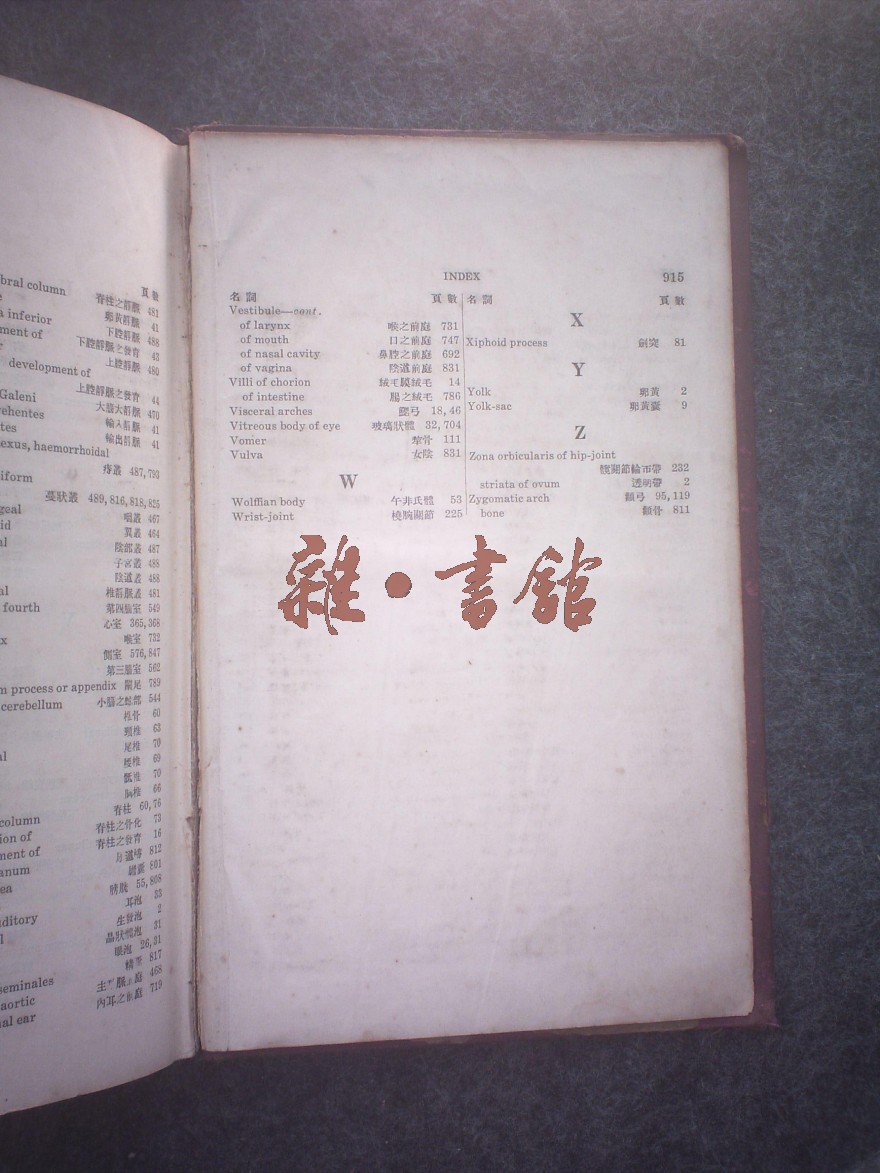 bral column 脊柱之靜脈 481
頁數
卵黃靜脈 41
a inferior 下腔靜脈 488
ment of 下腔靜脈之發育 43
上腔靜脈 480
development of
上腔靜脈之發育 44
Galeni 大腦大靜脈 470
rehentes 輸入靜脈 41
tes 輸出靜脈 41
exus, haemorrhoidal
痔叢 487,793
iform
蔓狀叢 489,816,818,825
geal 咽叢 467
id 翼叢 464
al 陰部叢 487
子宮叢 488
陰道叢 488
al 椎靜脈叢 481
fourth 第四腦室 549
心室 365,368
x 喉室 732
側室 576,847
第三腦室 562
m process or appendix 闌尾 789
cerebellum 544
60
頸椎 63
尾椎 70
al 腰椎 69
骶椎 70
胸椎 66
脊柱 60,76
column 脊柱之骨化 73
ion of 脊柱之發育 16
ment of 812
anum 801
ea 膀胱 55,808
耳泡 33
uditory 生發泡 2
l 31
眼泡 26,31
817
seminales 468
aortic 719
nal ear
INDEX 915
名詞 頁數
Vestibule—cont.
of larynx 喉之前庭 731
of mouth 口之前庭 747
of nasal cavity 鼻腔之前庭 692
of vagina 陰道前庭 831
Villi of chorion 絨毛膜絨毛 14
of intestine 腸之絨毛 786
Visceral arches 鰓弓 18,46
Vitreous body of eye 玻璃狀體 32,704
Vomer 犂骨 111
Vulva 女陰 831
W
Wolffian body 午非氏體 53
Wrist-joint 橈腕關節 225
名詞 頁數
X
Xiphoid process 劍突 81
Y
Yolk 卵黃 2
Yolk-sac 卵黃囊 9
Z
Zona orbicularis of hip-joint
髖關節輪帀帶 232
striata of ovum 透明帶 2
Zygomatic arch 顴弓 95,119
bone 顴骨 811
雜·書館